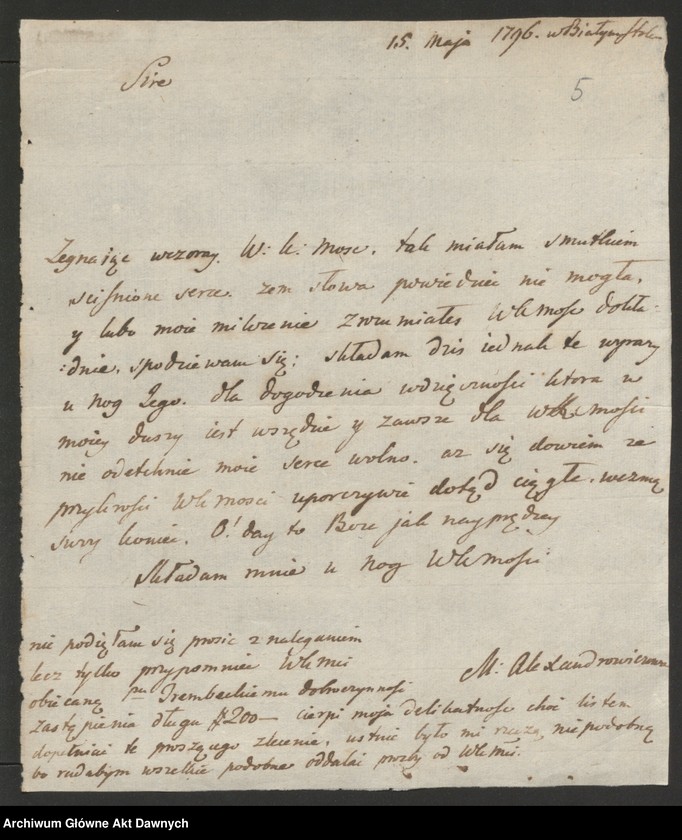 15. Maja 1796. w Białymstoku
Sire
5
Zegnaiąc wczoray. W: K: Mosc. tak miałam smutkiem
sciśnione serce. zem słowa powiedziec nie mogła,
y lubo moie milczenie zrozumiałes WKMosc dokła-
:dnie. spodziewam się: składam dzis iednak te wyrazy
u nog Jego. dla dogodzenia wdzięcznosci ktora w
moiey duszy iest wszędzie y zawsze dla WKMosci
nie odetchnie moie serce wolno. az się dowiem ze
przykrosci WKMosci uporczywie dotąd ciągłe. wezmą
swoy koniec. O! day to Boze jak nayprędzey
Składam mnie u nog WKMosci
nie podięłam się prosic z naleganiem
lecz tylko przypomniec WKMci
M: Alexandrowiczowa
obiecaną Pu Trembeckiemu dobroczynnosc
zastąpienia długu # 200— cierpi moja delikatnosc choc listem
dopełniac te proszącego zlecenie, ustnie było mi rzeczą niepodobną
bo radabym wszelkie podobne oddalac prozby od WKMci.
Archiwum Główne Akt Dawnych